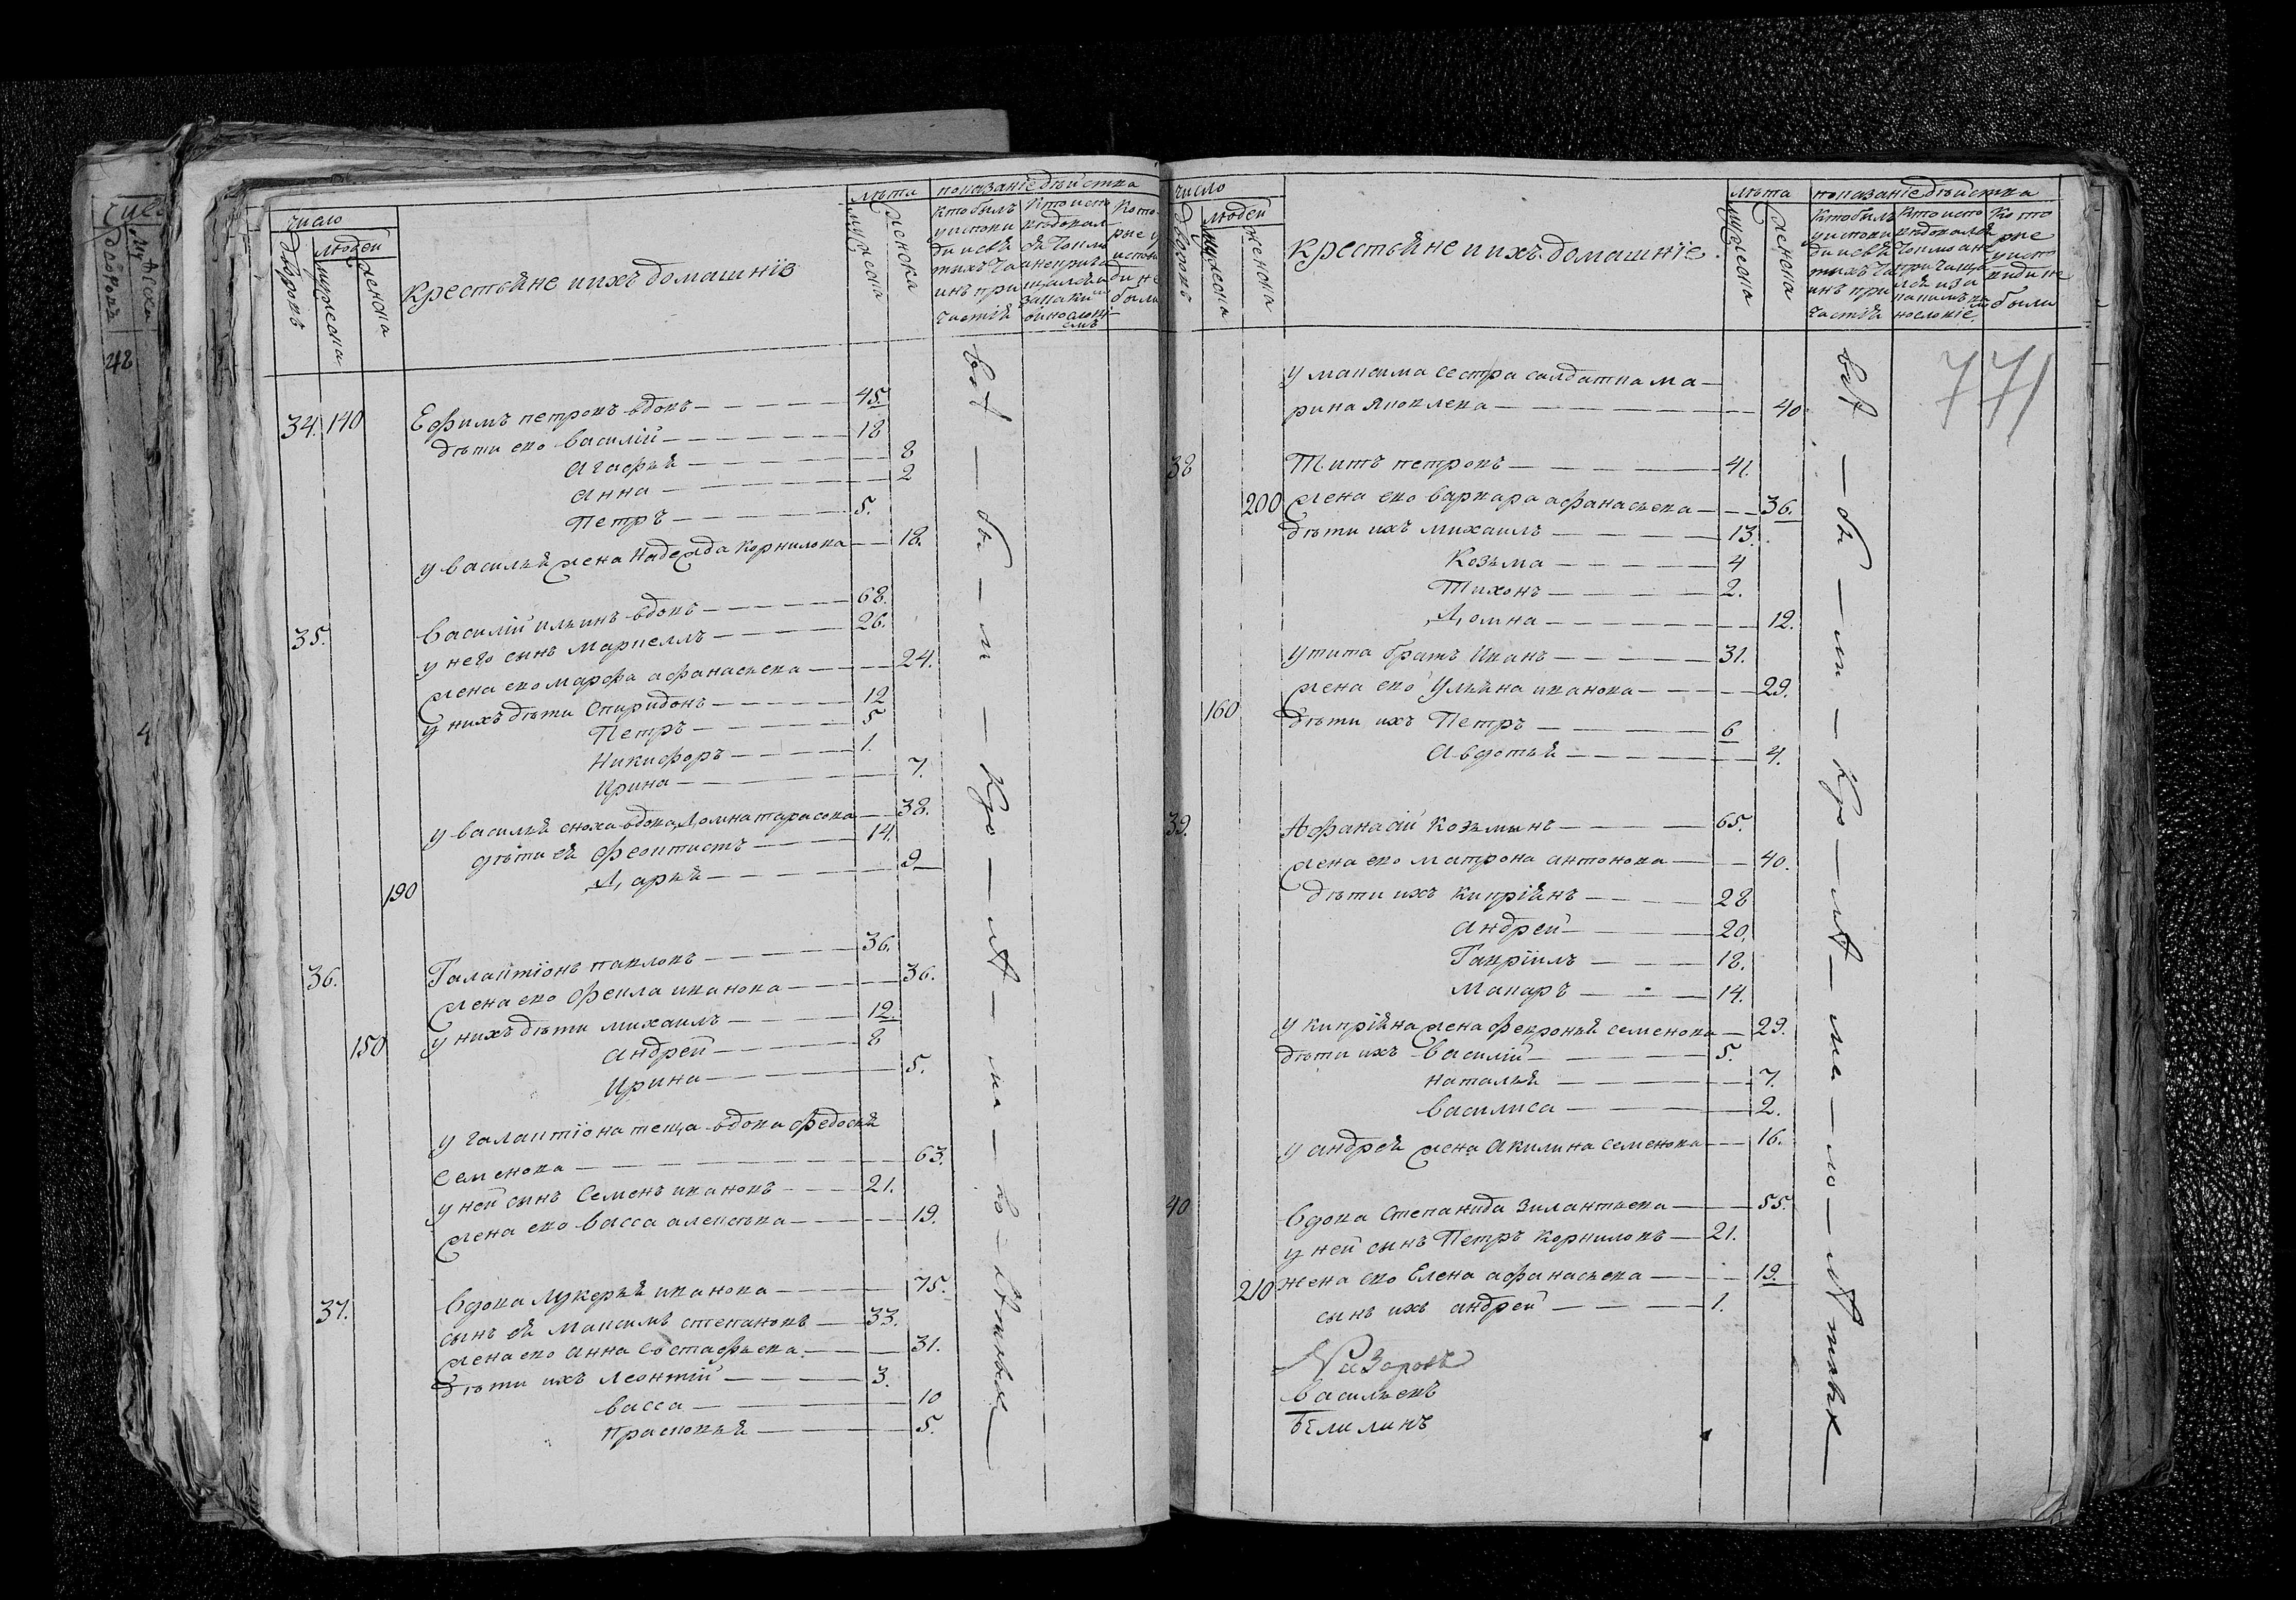 число
людей
дворовъ
мужеска
женска
крестьяне и ихъ домашнїе
лѣта
мужеска
женска
показанїе дѣйства
кто былъ
у испове
ди и свя
тыхъ Та
инъ при
частїя
Кто испо
ведовал
ся Токмо
а не прича
щался и
за каким
винослов
емъ
Кото
рые у
испове
ди не
были
34. 140 Ефимъ петровъ вдовъ 45.
дѣти ево Василїй 18
Агафья 8
Анна 2
Петръ 5.
у василья жена Надежда Корнилова 18.
35. Василїй ильинъ вдовъ 68.
у него сынъ Маркеллъ 26.
жена ево марфа афанасьева 24.
у нихъ дѣти Спиридонъ 12
Петръ 5
Никифоръ 1.
Ирина 7.
у василья сноха вдова Домна тарасова 38.
дѣти ея Феоктистъ 14.
190 Дарья 9
36. Галактїонъ павловъ 36.
жена ево Фекла иванова 36.
150 у нихъ дѣти михаилъ 12.
андрей 8
Ирина 5.
у галактїона теща вдова Федосья
Семенова 63.
у ней сынъ Семенъ ивановъ 21.
жена ево васса алексѣева 19.
37. вдова Лукерья иванова 75.
сынъ ея Максимъ степановъ 33.
жена ево анна Евстафьева 31.
дѣти ихъ Леонтїй 3.
васса 10
прасковья 5.
число
людей
дворовъ
мужеска
женска
крестьяне и ихъ домашнїе
лѣта
мужеска
женска
показанїе дѣйства
кто былъ
у испове
ди и свя
тыхъ Та
инъ при
частїя
Кто испо
ведовался
Токмо а не
причаща
лся и за
каким ви
нословїе
Кото
рые
у испо
веди не
были
771
у максима сестра салдатка ма
рина Яковлева 40.
38 Титъ петровъ 41.
200 жена ево варвара афанасьева 36.
дѣти ихъ михаилъ 13.
Козьма 4
Тихонъ 2.
Домна 12.
у тита братъ Иванъ 31.
жена ево Ульяна иванова 29.
160 дѣти ихъ Петръ 6
Авдотья 4.
39. Афанасїй Козьминъ 65.
жена ево матрона антонова 40.
дѣти ихъ кипрїянъ 28
андрей 20.
Гаврїилъ 18.
Макаръ 14.
у кипрїяна жена Февронья семенова 29.
дѣти ихъ василїй 5.
наталья 7.
василиса 2.
у андрея жена Акилина семенова 16.
40 вдова Степанида Зилантьева 55.
у ней сынъ Петръ Корниловъ 21.
210 жена ево Елена афанасьева 19.
сынъ ихъ андрей 1.
Назаровъ
Васильевъ